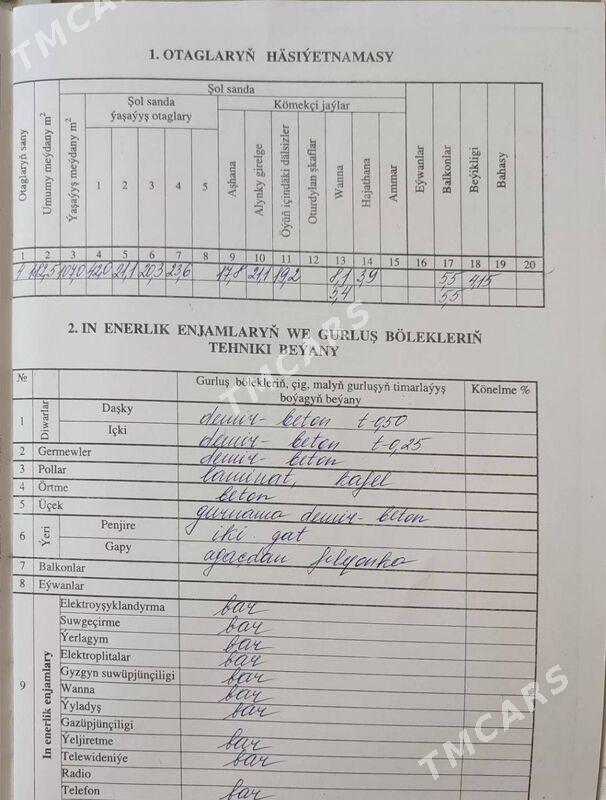 TMCARS
1. OTAGLARYŇ HÄSIÝETNAMASY
Otaglaryň sany
Umumy meýdany m²
Ýaşaýyş meýdany m²
Şol sanda
Şol sanda ýaşaýyş otaglary
1 2 3 4 5
Kömekçi jaýlar
Aşhana
Alynky girelge
Öýüň içindäki dälsizler
Oturdylan şkaflar
Wanna
Hajathana
Ammar
Eýwanlar
Balkonlar
Beýikligi
Bahasy
1 2 3 4 5 6 7 8 9 10 11 12 13 14 15 16 17 18 19 20
4 182,5 107,0 42,0 21,1 20,3 23,6 17,8 21,1 19,2 8,1 3,9 5,5 4,15
5,4 5,5
2. IN ENERLIK ENJAMLARYŇ WE GURLUŞ BÖLEKLERIŇ
TEHNIKI BEÝANY
TMCARS
№ Gurluş bölekleriň, çig, malyň gurluşyň timarlaýyş boýagyň beýany Könelme %
1 Diwarlar Daşky demir-beton t-0,50
Içki demir-beton t-0,25
2 Germewler demir-beton
3 Pollar laminat, kafel
4 Örtme beton
5 Üçek gurnama demir-beton
6 Ýeri Penjire iki gat
Gapy agaçdan filýonka
7 Balkonlar
8 Eýwanlar
9 In enerlik enjamlary
Elektroyşyklandyrma bar
Suwgeçirme bar
Ýerlagym bar
Elektroplitalar bar
Gyzgyn suwüpjünçiligi bar
Wanna bar
Ýyladyş bar
Gazüpjünçiligi
Ýeljiretme bar
Telewideniýe bar
Radio
Telefon bar
TMCARS